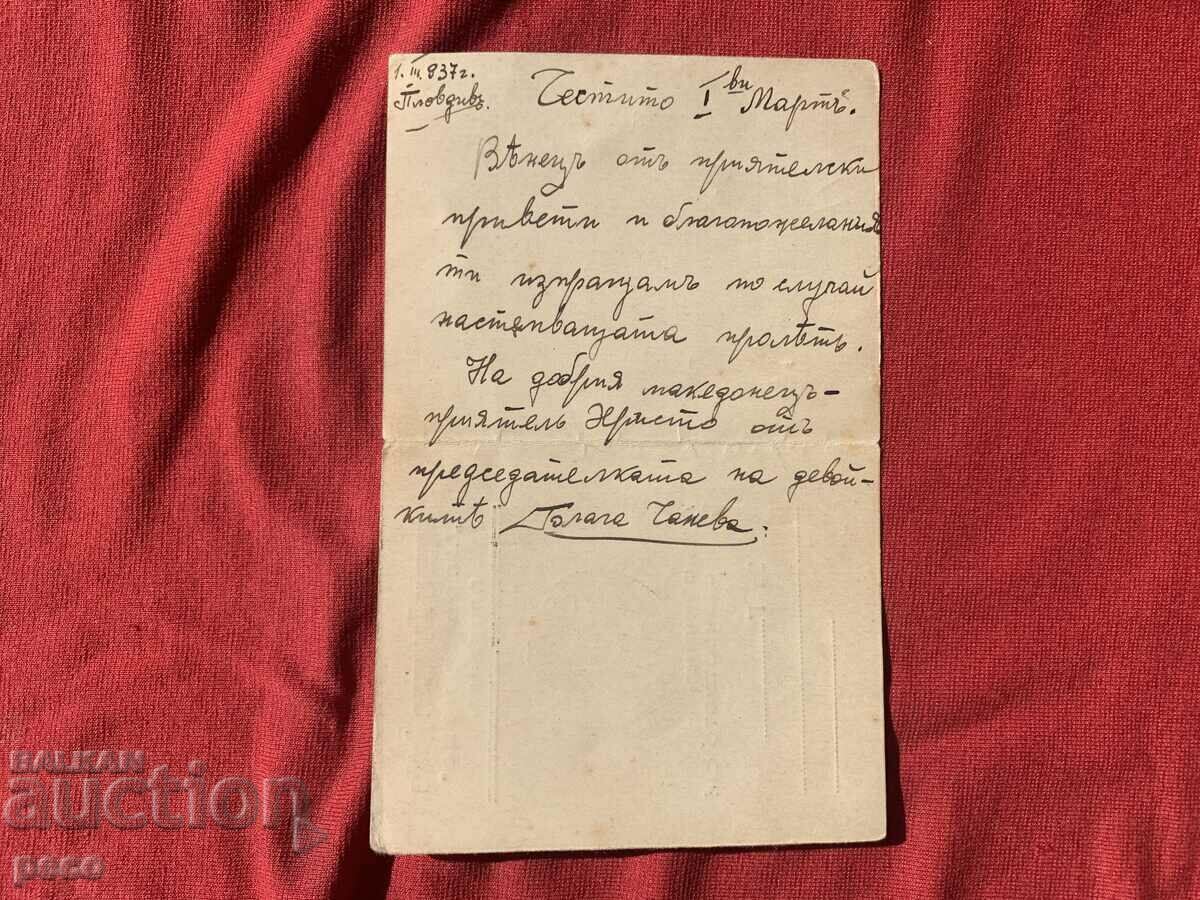 1. III 937 г.
Пловдивъ.
Честито I ви Мартъ.
Вѣнецъ отъ приятелски
привети и благопожелания
ти изпращамъ по случай
настѫпващата пролѣть.
На добрия македонецъ-
приятель Христо отъ
председателката на девой-
китѣ Чанева.
BALKAN
auction
paco